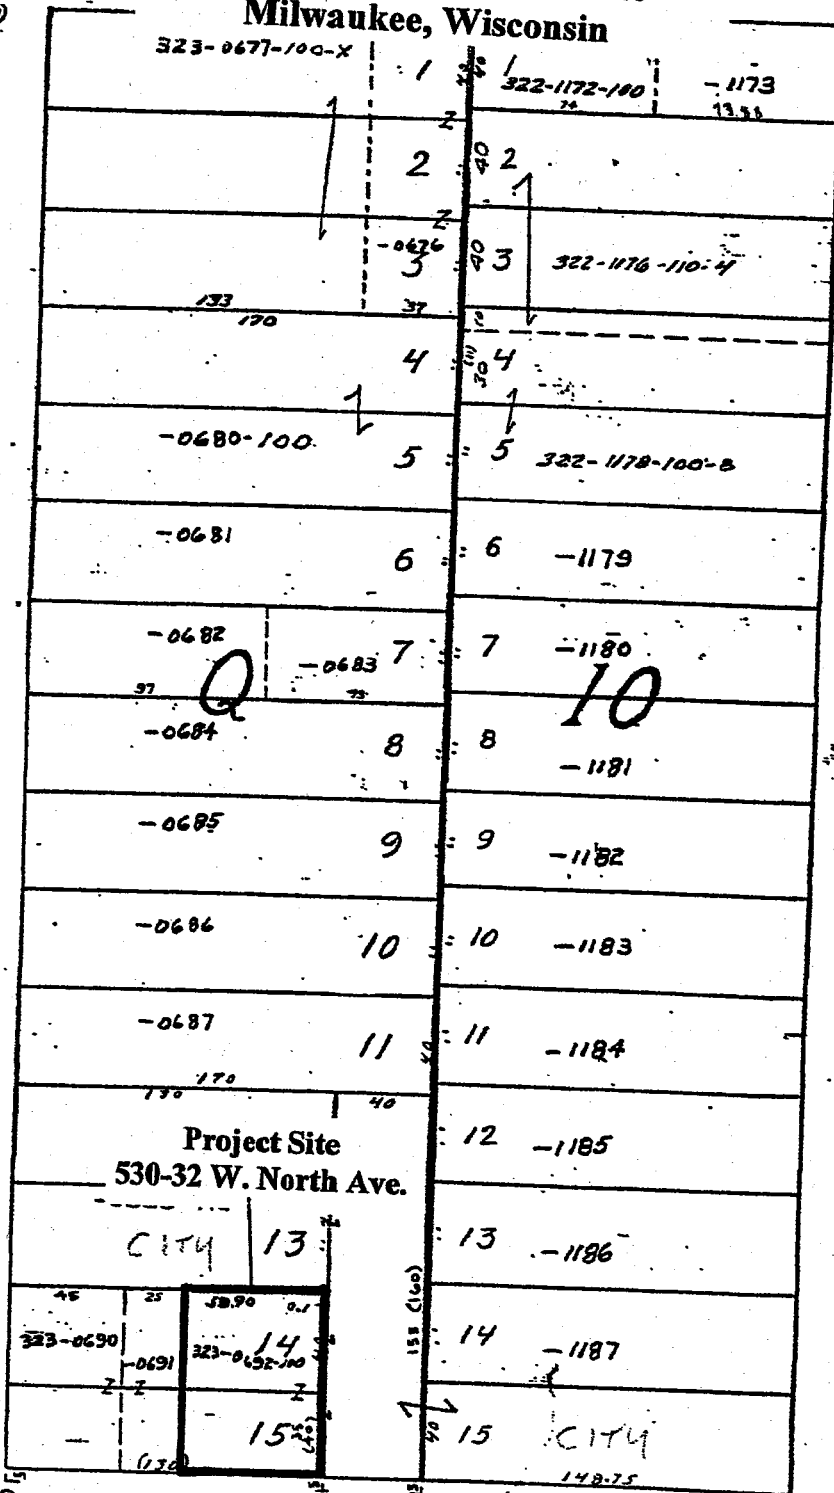 Milwaukee, Wisconsin
323-0677-100-X 1 40 40 1 322-1172-100 -1173
74 73.88
Z
2 40 2
Z
-0676
3 40 3 322-1176-110-4
133 37
170 10
4 (11) 30 4
-0680-100 5 5 322-1178-100-B
-0681 6 6 -1179
-0682 -0683 7 7 -1180
Q 10
97 73
-0684 8 8 -1181
-0685 9 9 -1182
-0686 10 10 -1183
-0687 11 40 11 -1184
170
130 40
Project Site
530-32 W. North Ave.
12 -1185
CITY 13 13 -1186
45 25 58.90 0.1 155 (160)
323-0690 -0691 323-0692-100 14 14 -1187
Z Z Z
15 (40) 40 15 CITY
(130) 148.75